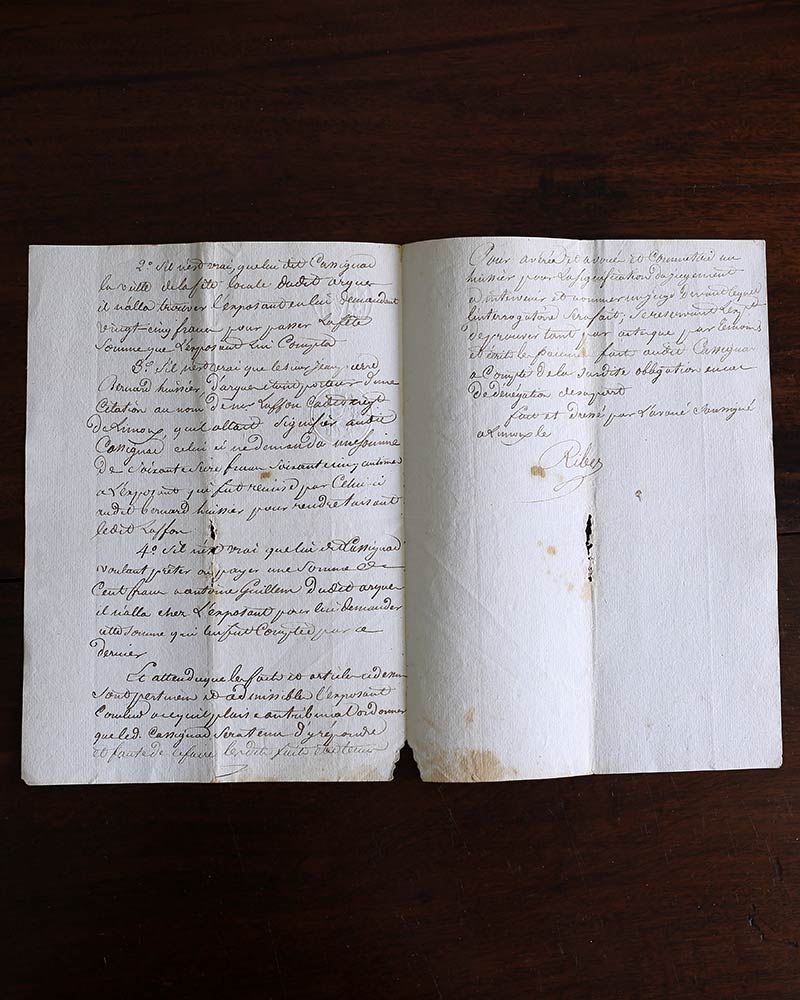 2.o S'il n'est vrai, que lui dit Cassignac
la veille de la fête locale dudit arques
il n'alla trouver l'exposant en lui demandant
vingt cinq francs pour passer la fête
somme que l'exposant lui Compta
3.o S'il n'est vrai que le sieur jean pierre
Bernard huissier, d'arques étant porteur d'une
Citation au nom de mr. Laffon
de Limoux, qu'il allait signifier audit
Cassignac celui ci ne demanda une somme
de Soixante Seize francs soixante cinq centimes
a l'exposant qui fut remise par Celui ci
audit Bernard huissier pour rendre taisant
ledit Laffon
4.o S'il n'est vrai que lui dit Cassignac
voulant prêter ou payer une Somme de
Cent francs a antoine Guillem dudit arques
il n'alla chez L'exposant pour lui demander
cette somme qui lui fut Comptée par ce
dernier
Et attendu que les faits et articles ci dessus
sont pertinens et admissibles l'exposant
Conclud a ce qu'il plaise au tribunal ordonner
que led. Cassignac sera tenu d'y répondre
et faute de ce faire lesdits faits être tenus
Pour avérés et avoués et Commettre un
huissier pour La signification du jugement
a intervenir et nommer un juge devant lequel
l'interrogatoire sera fait, Se réservant L'expt.
de prouver tant par actes que par témoins
fait audit Cassignac
a Compte de la susdite obligation en cas
De dénégation de sa part
fait et dressé par L'avoué Soussigné
a Limoux le
Ribes